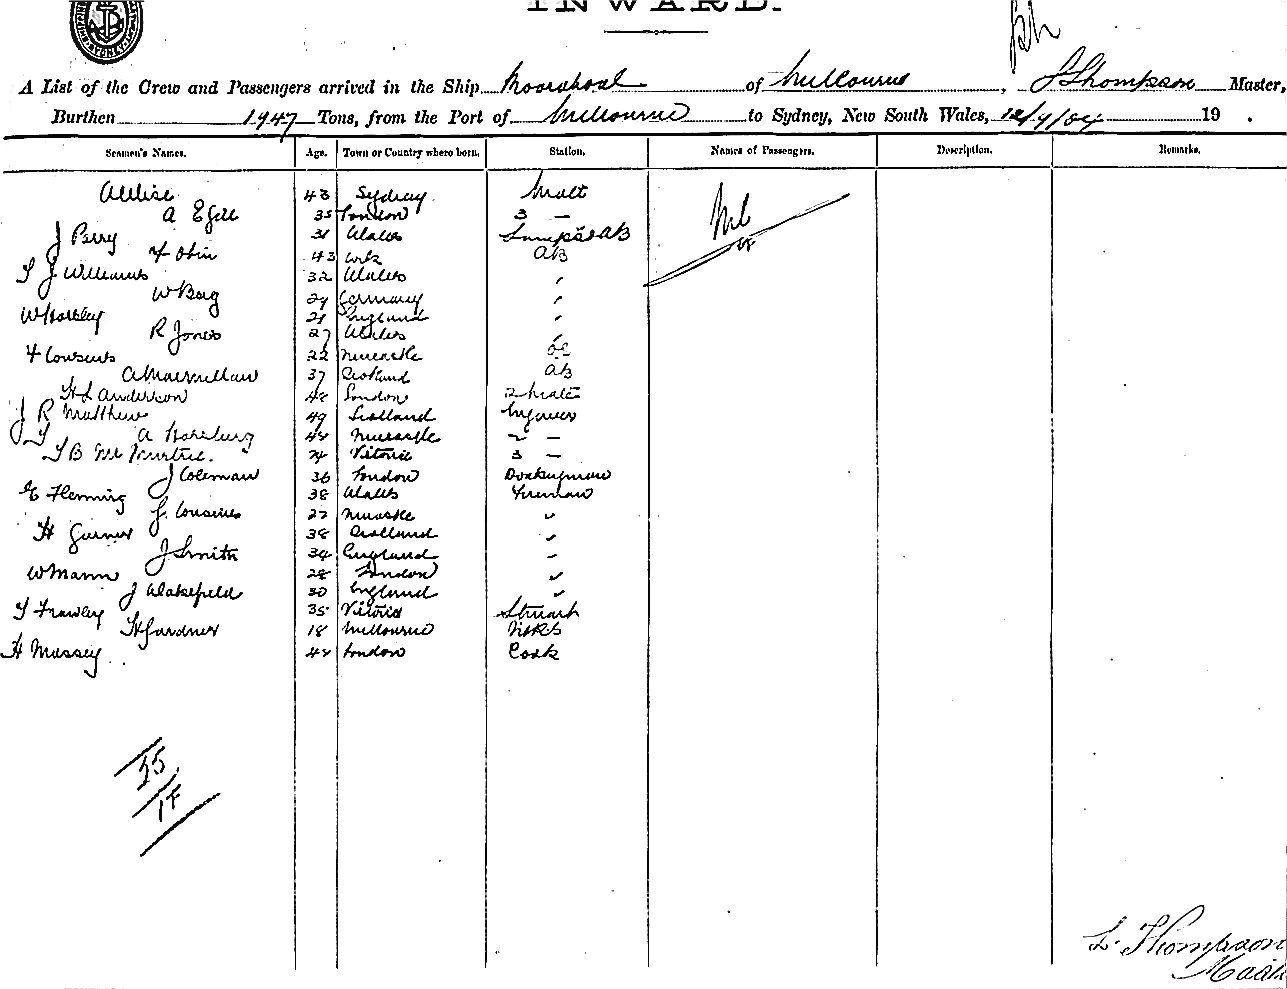 INWARD.
A List of the Crew and Passengers arrived in the Ship Moorabool of Melbourne, Thompson Master,
Burthen 1947 Tons, from the Port of Melbourne to Sydney, New South Wales, 12/4/04 19 .
Seamen's Names. Age. Town or Country where born. Station. Names of Passengers. Description. Remarks.
43 Sydney Mate Nil
A 35 London 3 —
J Perry 31 Wales AB
43 Cork AB
J Williams 32 Wales "
W Berg 29 Germany "
W 21 England "
R Jones 27 Wales "
F Cousens 22 Newcastle OS
A Macmillan 37 Scotland AB
H L Anderson 48 London 2 Mate
J R Matthew 49 Scotland Engineer
A 44 Newcastle 2 —
J B Mc Murtrie 24 Victoria 3 —
J Coleman 36 London Donkeyman
E Flemming 38 Wales Fireman
J. Cousins 27 Newcastle "
H 38 Scotland "
J Smith 34 England "
W Mann 28 London "
J Wakefield 30 England "
T Frawley 35 Victoria Steward
H Gardner 18 Melbourne
H Massey 44 London Cook
25
18
L. Thompson